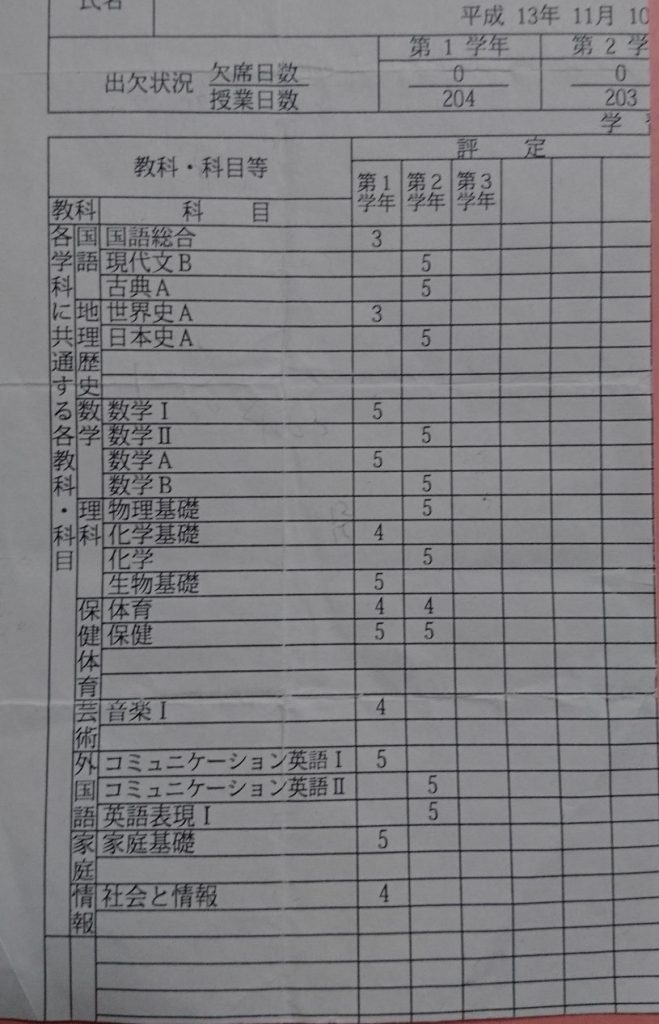 氏名
平成 13年 11月 10
出欠状況 欠席日数 授業日数
第1学年 第2学
0 0
204 203
学
教科・科目等 評定
第1学年 第2学年 第3学年
教科 科目
各学科に共通する各教科・科目
国語 国語総合 3
現代文B 5
古典A 5
地理歴史 世界史A 3
日本史A 5
数学 数学Ⅰ 5
数学Ⅱ 5
数学A 5
数学B 5
理科 物理基礎 5
化学基礎 4
化学 5
生物基礎 5
保健体育 体育 4 4
保健 5 5
芸術 音楽Ⅰ 4
外国語 コミュニケーション英語Ⅰ 5
コミュニケーション英語Ⅱ 5
英語表現Ⅰ 5
家庭 家庭基礎 5
情報 社会と情報 4